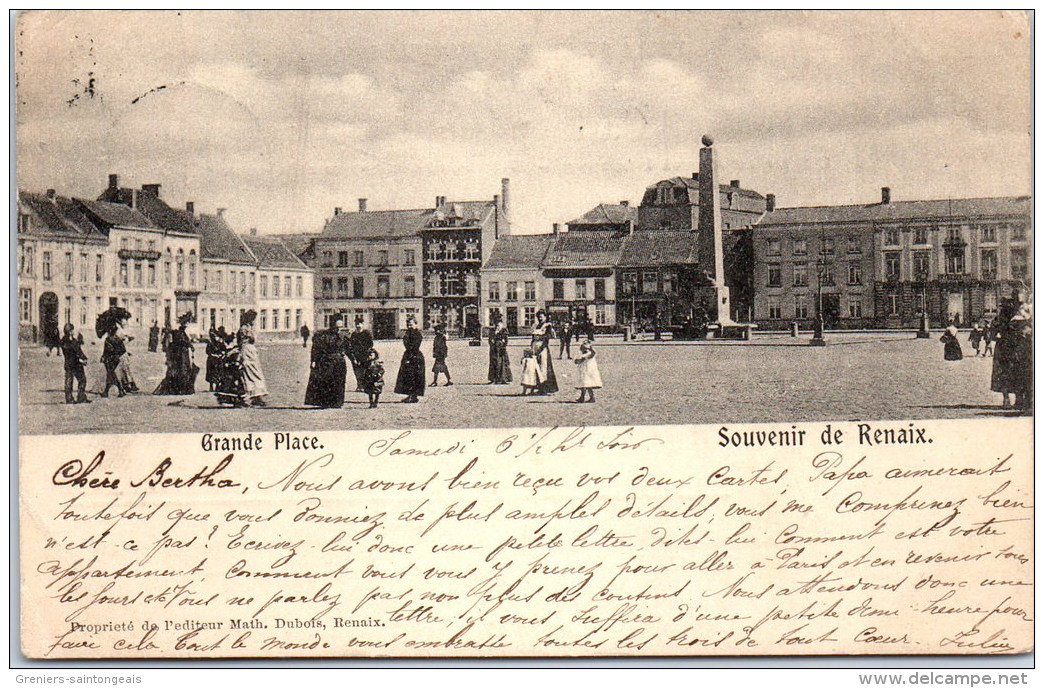 Grande Place.
Souvenir de Renaix.
Samedi 6 ½ h soir
Chère Bertha, Nous avons bien reçu vos deux cartes, Papa aimerait
toutefois que vous donniez de plus amples détails, vous me comprenez bien
n'est-ce pas? Ecrivez-lui donc une petite lettre, dites-lui comment est votre
appartement, comment vous vous y prenez pour aller à Paris et en revenir tous
les jours etc Vous ne parlez pas non plus des cousins. Nous attendons donc une
lettre, il vous suffira d'une petite demi-heure pour
Proprieté de l'editeur Math. Dubois, Renaix.
faire cela. Tout le monde vous embrasse toutes les trois de tout cœur.
Greniers-saintongeais
© www.delcampe.net